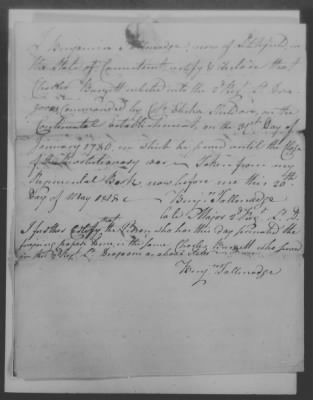 I Benjamin Tallmadge, now of Litchfield, in
the State of Connecticut certify & declare that
Charles Burrett enlisted into the 2d Regt Lt Dra-
goons Commanded by Col. Elisha Sheldon, on the
Continental establishment, on the 21st Day of
January 1780, in which he served until the Close
of the Revolutionary war — Taken from my
Regimental Book now before me this 20th
Day of May 1818
Benjn Tallmadge
late Major 2d Regt L. D.
I further certify that the Person who has this day presented the
foregoing papers to me, is the same Charles Burrett who served
in the 2d Regt Lt Dragoons as above stated
Benjn Tallmadge